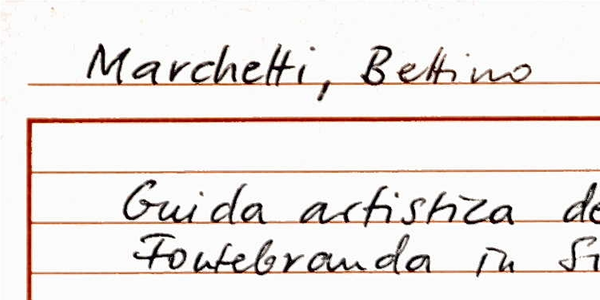 Marchetti, Bettino
Guida artistica de
Fontebranda in Si